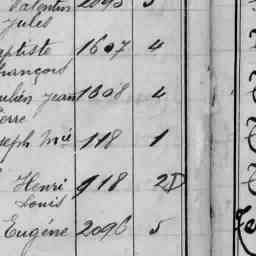 Valentin 2095 5
Jules
aptiste 1607 4
François
Julien Jean 1608 4
ierre
oseph Mie 118 1
Henri 918 2D
Louis
Eugéne 2096 5